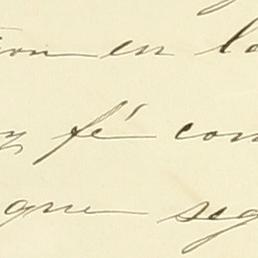 ion en la
y fé con
que seg